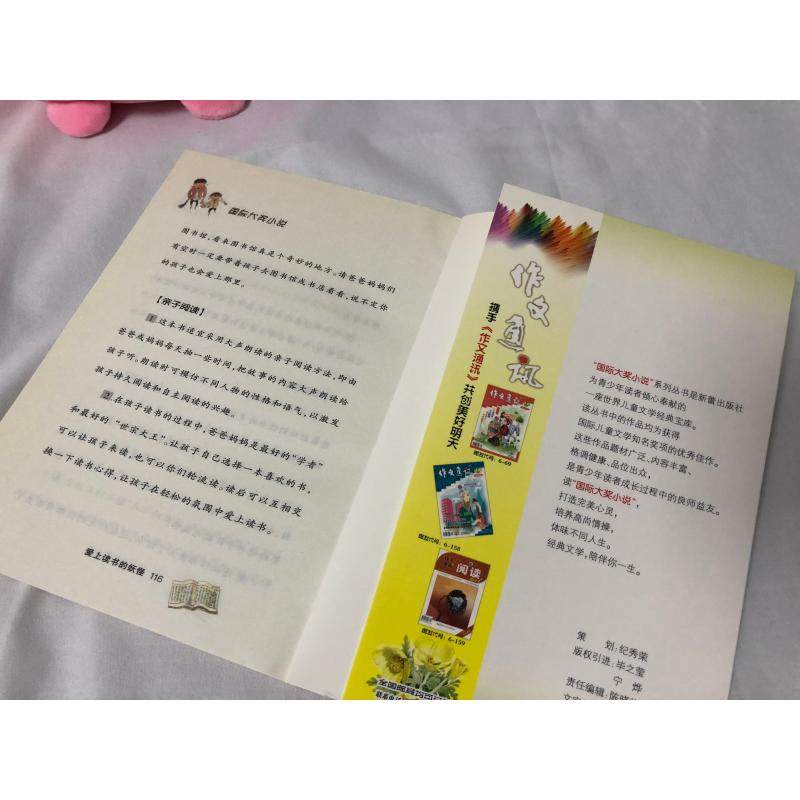 国际大奖小说
图书馆,看来图书馆真是个奇妙的地方。请爸爸妈妈们
有空时一定要带着孩子去图书馆或书店看看,说不定你
的孩子也会爱上那里。
【亲子阅读】
1 这本书适宜采用大声朗读的亲子阅读方法,即由
爸爸或妈妈每天抽一些时间,把故事的内容大声朗读给
孩子听。朗读时可模仿不同人物的性格和语气,以激发
孩子持久阅读和自主阅读的兴趣。
2 在孩子读书的过程中,爸爸妈妈是最好的“学者”
和最好的“世宗大王”。让孩子自己选择一本喜欢的书,
可以让孩子来读,也可以你们轮流读。读后可以互相交
换一下读书心得,让孩子在轻松的氛围中爱上读书。
爱上读书的妖怪 116
作文通讯
携手《作文通讯》共创美好明天
作文通讯
邮发代号:6-69
作文通讯
邮发代号:6-158
阅读
邮发代号:6-159
全国邮局均可
“国际大奖小说”系列丛书是新蕾出版社
为青少年读者倾心奉献的
一座世界儿童文学经典宝库。
该丛书中的作品均为获得
国际儿童文学知名奖项的优秀佳作。
这些作品题材广泛、内容丰富、
格调健康、品位出众,
是青少年读者成长过程中的良师益友。
读“国际大奖小说”,
打造完美心灵,
培养高尚情操,
体味不同人生。
经典文学,陪伴你一生。
策 划:纪秀荣
版权引进:毕之莹
宁 烨
责任编辑:陈晓